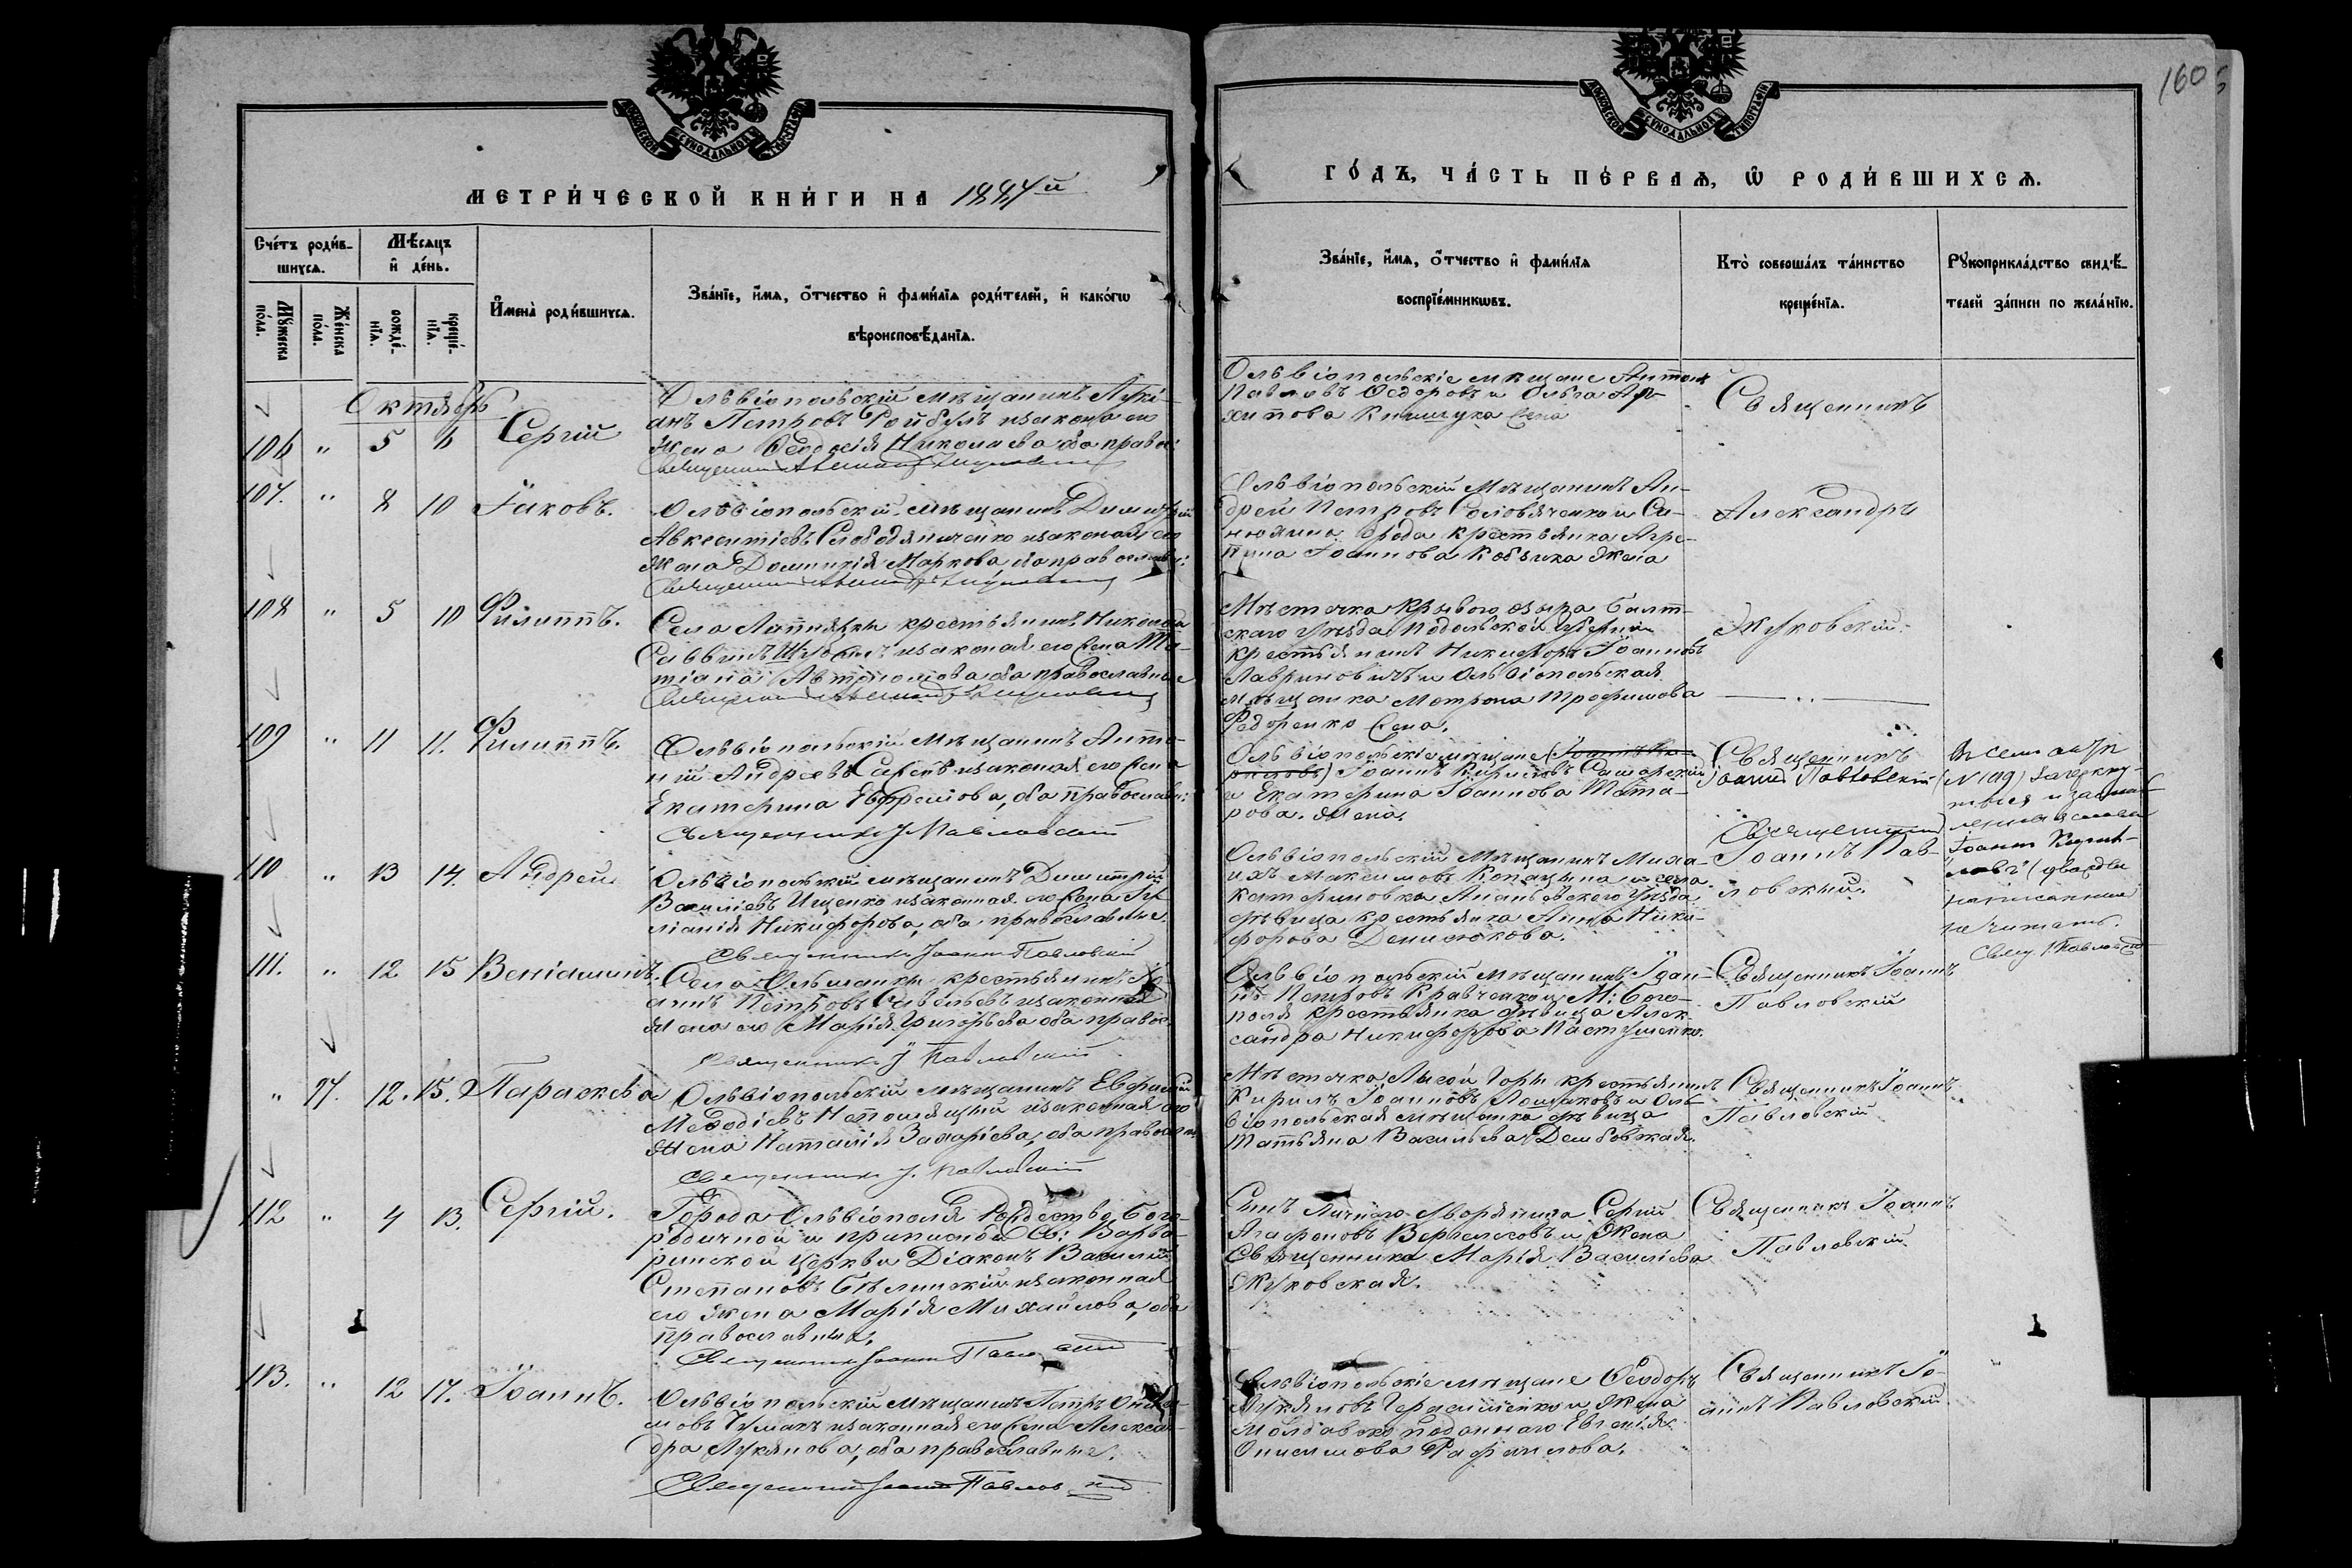 160
МОСКОВСКОЙ СѴНОДАЛЬНОЙ ТИПОГРАФІИ
МОСКОВСКОЙ СѴНОДАЛЬНОЙ ТИПОГРАФІИ
МЕТРИ́ЧЕСКОЙ КНИ́ГИ НА 1884й
ГО́ДЪ, ЧА́СТЬ ПЕ́РВАѦ, Ѡ҆ РОДИ́ВШИХСѦ.
Сче́тъ роди́в-
шихсѧ.
Мѣ́сѧцъ
и҆ де́нь.
Мꙋ́жеска по́ла.
Же́нска по́ла.
рожде́-
нїѧ.
креще́-
нїѧ.
И҆мена̀ роди́вшихсѧ.
Зва́нїе, и҆́мѧ, ѻ҆́тчество и҆ фами́лїѧ роди́телей, и҆ како́гѡ
вѣроисповѣ́данїѧ.
Зва́нїе, и҆́мѧ, ѻ҆́тчество и҆ фами́лїѧ
воспрїе́мникѡвъ.
Кто̀ соверша́лъ та́инство
креще́нїѧ.
Рꙋкоприкла́дство свидѣ́-
телей за́писи по жела́нїю.
Октябрь
106 " 5 6 Сергій
Ольвіопольскій мѣщанинъ
анъ Петровъ и законная его
жена Ѳеодосія Николаева оба правос:
Ольвіопольскіе мѣщане Антонъ
Павловъ Ѳедоровъ и Ольга Ар-
хипова жена
Священникъ
107. " 8 10 Іаковъ.
Ольвіопольскій мѣщанинъ Димитрій
Авксентіевъ Слободяниченко и законная его
жена Домникія Маркова, оба православн:
Ольвіопольскій мѣщанинъ Ан-
дрей Петровъ Соловьяченко и Си-
крестьянка Агри-
пина Іоаннова Кобзика жена
Александръ
108 " 5 10 Филиппъ.
Села крестьянинъ Николай
Саввинъ и законная его жена Та-
тіана Автономова оба православные
Мѣстечка Криваго озера Балт-
скаго уѣзда Подольской губерніи
крестьянинъ Никифоръ Іоанновъ
Лавриновичъ и Ольвіопольская
мѣщанка Матрона Трофимова
Федоренко жена.
Жуковскій.
109 " 11 11. Филиппъ.
Ольвіопольскій мѣщанинъ Анто-
ній Андреевъ и законная его жена
Екатерина Ефремова, оба православн:
Священникъ І. Павловскій
Ольвіопольскіе мѣщане (Іоаннъ Ки-
риловъ) Іоаннъ Кириловъ Самарскій
и Екатерина Іоаннова Тата-
рова. жена.
Священникъ
Іоаннъ Павловскій
Въ семъ актѣ
(№ 109) зачеркну-
тыя
слова
Іоаннъ Кири-
ловъ" (дважды
написанныя
не читать.
Свящ. І. Павловскій
110 " 13 14. Андрей
Ольвіопольскій мѣщанинъ Димитрій
Василіевъ Ищенко и законная его жена Іу-
ліанія Никифорова, оба православные.
Священникъ Іоаннъ Павловскій
Ольвіопольскій мѣщанинъ Миха-
илъ Максимовъ Копацына и села
Катериновки Ананьевскаго уѣзда
дѣвица крестьянка Анна Ники-
форова Денисюкова.
Священникъ
Іоаннъ Пав-
ловскій.
111. " 12 15 Веніаминъ.
Села Ольшанки крестьянинъ Іо-
аннъ Петровъ Савельевъ и законная
жена его Марія Григорьева оба правос.
Священникъ І. Павловскій
Ольвіопольскій мѣщанинъ Іоан-
нъ Петровъ Кравченко и М: Бого-
поля крестьянка дѣвица Алек-
сандра Никифорова Пастушенко.
Священникъ Іоаннъ
Павловскій
" 97. 12. 15. Параскева
Ольвіопольскій мѣщанинъ Евфимій
Меѳодіевъ и законная его
жена Наталія Захаріева, оба православн
Священникъ І. Павловскій
Мѣстечка Лысой Горы крестьянинъ
Кирилъ Іоанновъ и Оль-
віопольская мѣщанка дѣвица
Татьяна Васильева Дембовская.
Священникъ Іоаннъ
Павловскій
112 " 4 13. Сергій.
Города Ольвіополя Рождество Бого-
родичной и приписной Св: Варва-
ринской церкви Діаконъ Василій
Степановъ Бѣлинскій и законная
его жена Марія Михаилова, оба
православные.
Священникъ Іоаннъ Павловскій
Сынъ Личнаго Дворянина Сергій
Агафоновъ и жена
Священника Марія Василіева
Жуковская.
Священникъ Іоаннъ
Павловскій
113. " 12 17. Іоаннъ.
Ольвіопольскій мѣщанинъ ПетръОниси-
мовъ Чумакъ и законная его жена Алексан-
дра Лукянова, оба православные.
Священникъ Іоаннъ Павловскій
Ольвіопольскіе мѣщане Ѳеодоръ
Лукяновъ Герасименко и жена
Молдавско подданнаго Евгенія
Онисимова Рафаилова.
Священникъ Іо-
аннъ Павловскій